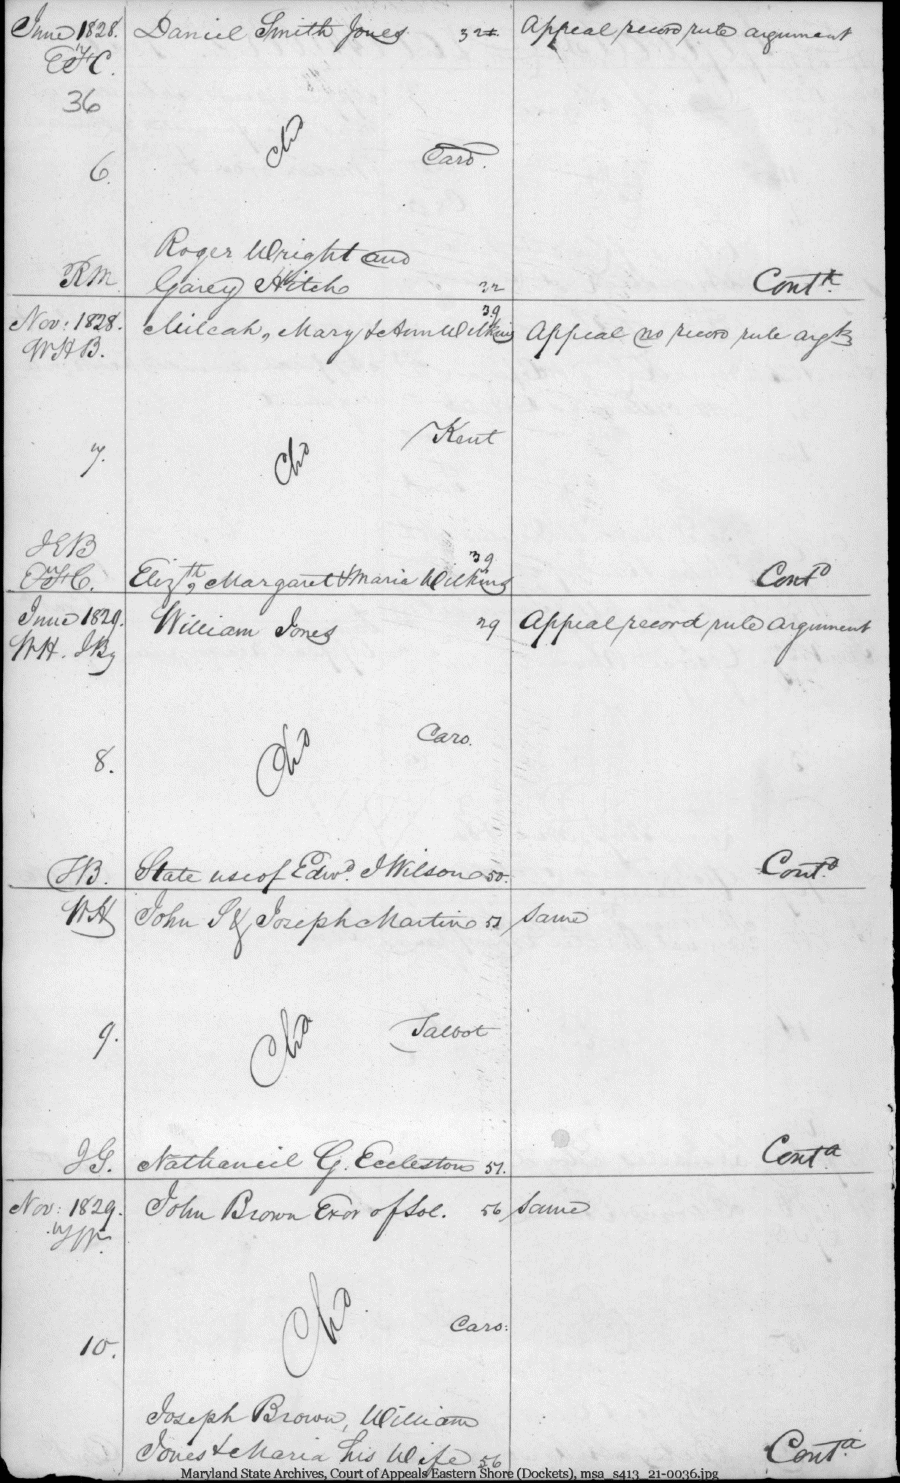 June 1828. Daniel Smith Jones 32 Appeal record rule argument
36
6. Caro.
Roger Wright and
RM Garey Hitch 32 Cont.d
Nov: 1828. Milcah, Mary & Ann Wilkins 39 Appeal no record rule arg.t
WHB.
7. Kent
JEB
Eliz.th, Margaret & Maria Wilkins 39 Cont.d
June 1829. William Jones 29 Appeal record rule argument
WH.
8. Caro.
JB. State use of Edw.d J Wilson 50. Cont.d
WH John S & Joseph Martin 51 Same
9. Talbot
JG. Nathaniel G. Eccleston 51. Cont.d
Nov: 1829. John Brown Exor of Sol. 56 Same
10. Caro:
Joseph Brown, William
Jones & Maria his Wife 56 Cont.d
Maryland State Archives, Court of Appeals Eastern Shore (Dockets), msa_s413_21-0036.jpg